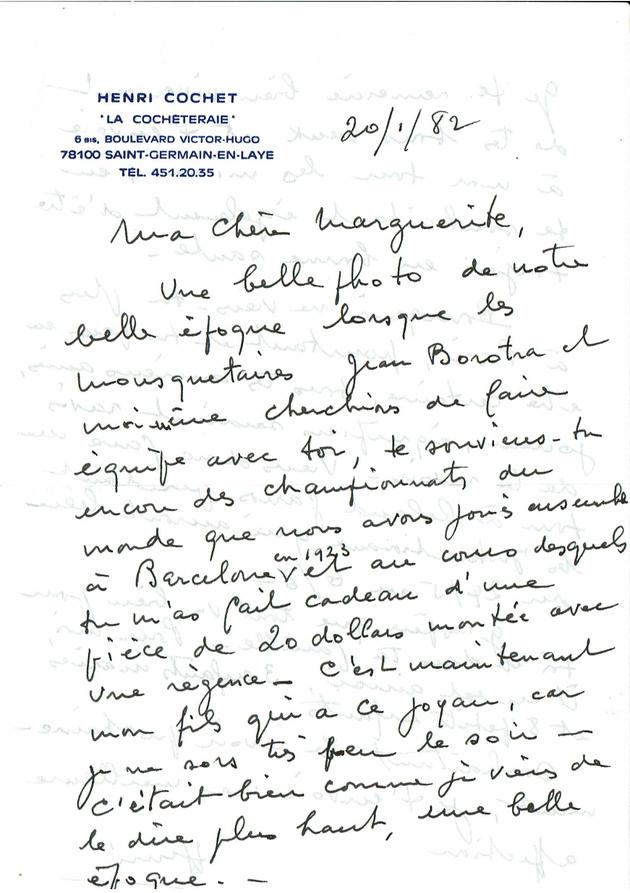 HENRI COCHET
"LA COCHÈTERAIE"
6 BIS, BOULEVARD VICTOR-HUGO
78100 SAINT-GERMAIN-EN-LAYE
TÉL. 451.20.35
20/1/82
Ma Chère Marguerite,
Une belle photo de notre
belle époque lorsque les
mousquetaires Jean Borotra et
moi même cherchions de faire
équipe avec toi, te souviens-tu
encore des championnats du
monde que nous avons joués ensemble
à Barcelone en 1923 et au cours desquels
tu m'as fait cadeau d'une
pièce de 20 dollars montée avec
une régence — C'est maintenant
mon fils qui a ce joyau, car
je ne sors très peu le soir —
C'était bien comme je viens de
le dire plus haut, une belle
époque. —